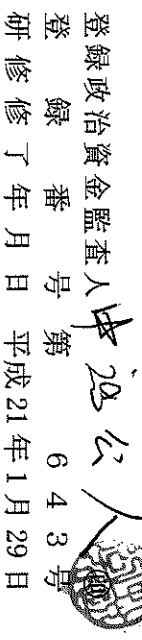 登録政治資金監査人
登録番号 第643号
研修修了年月日 平成21年1月29日